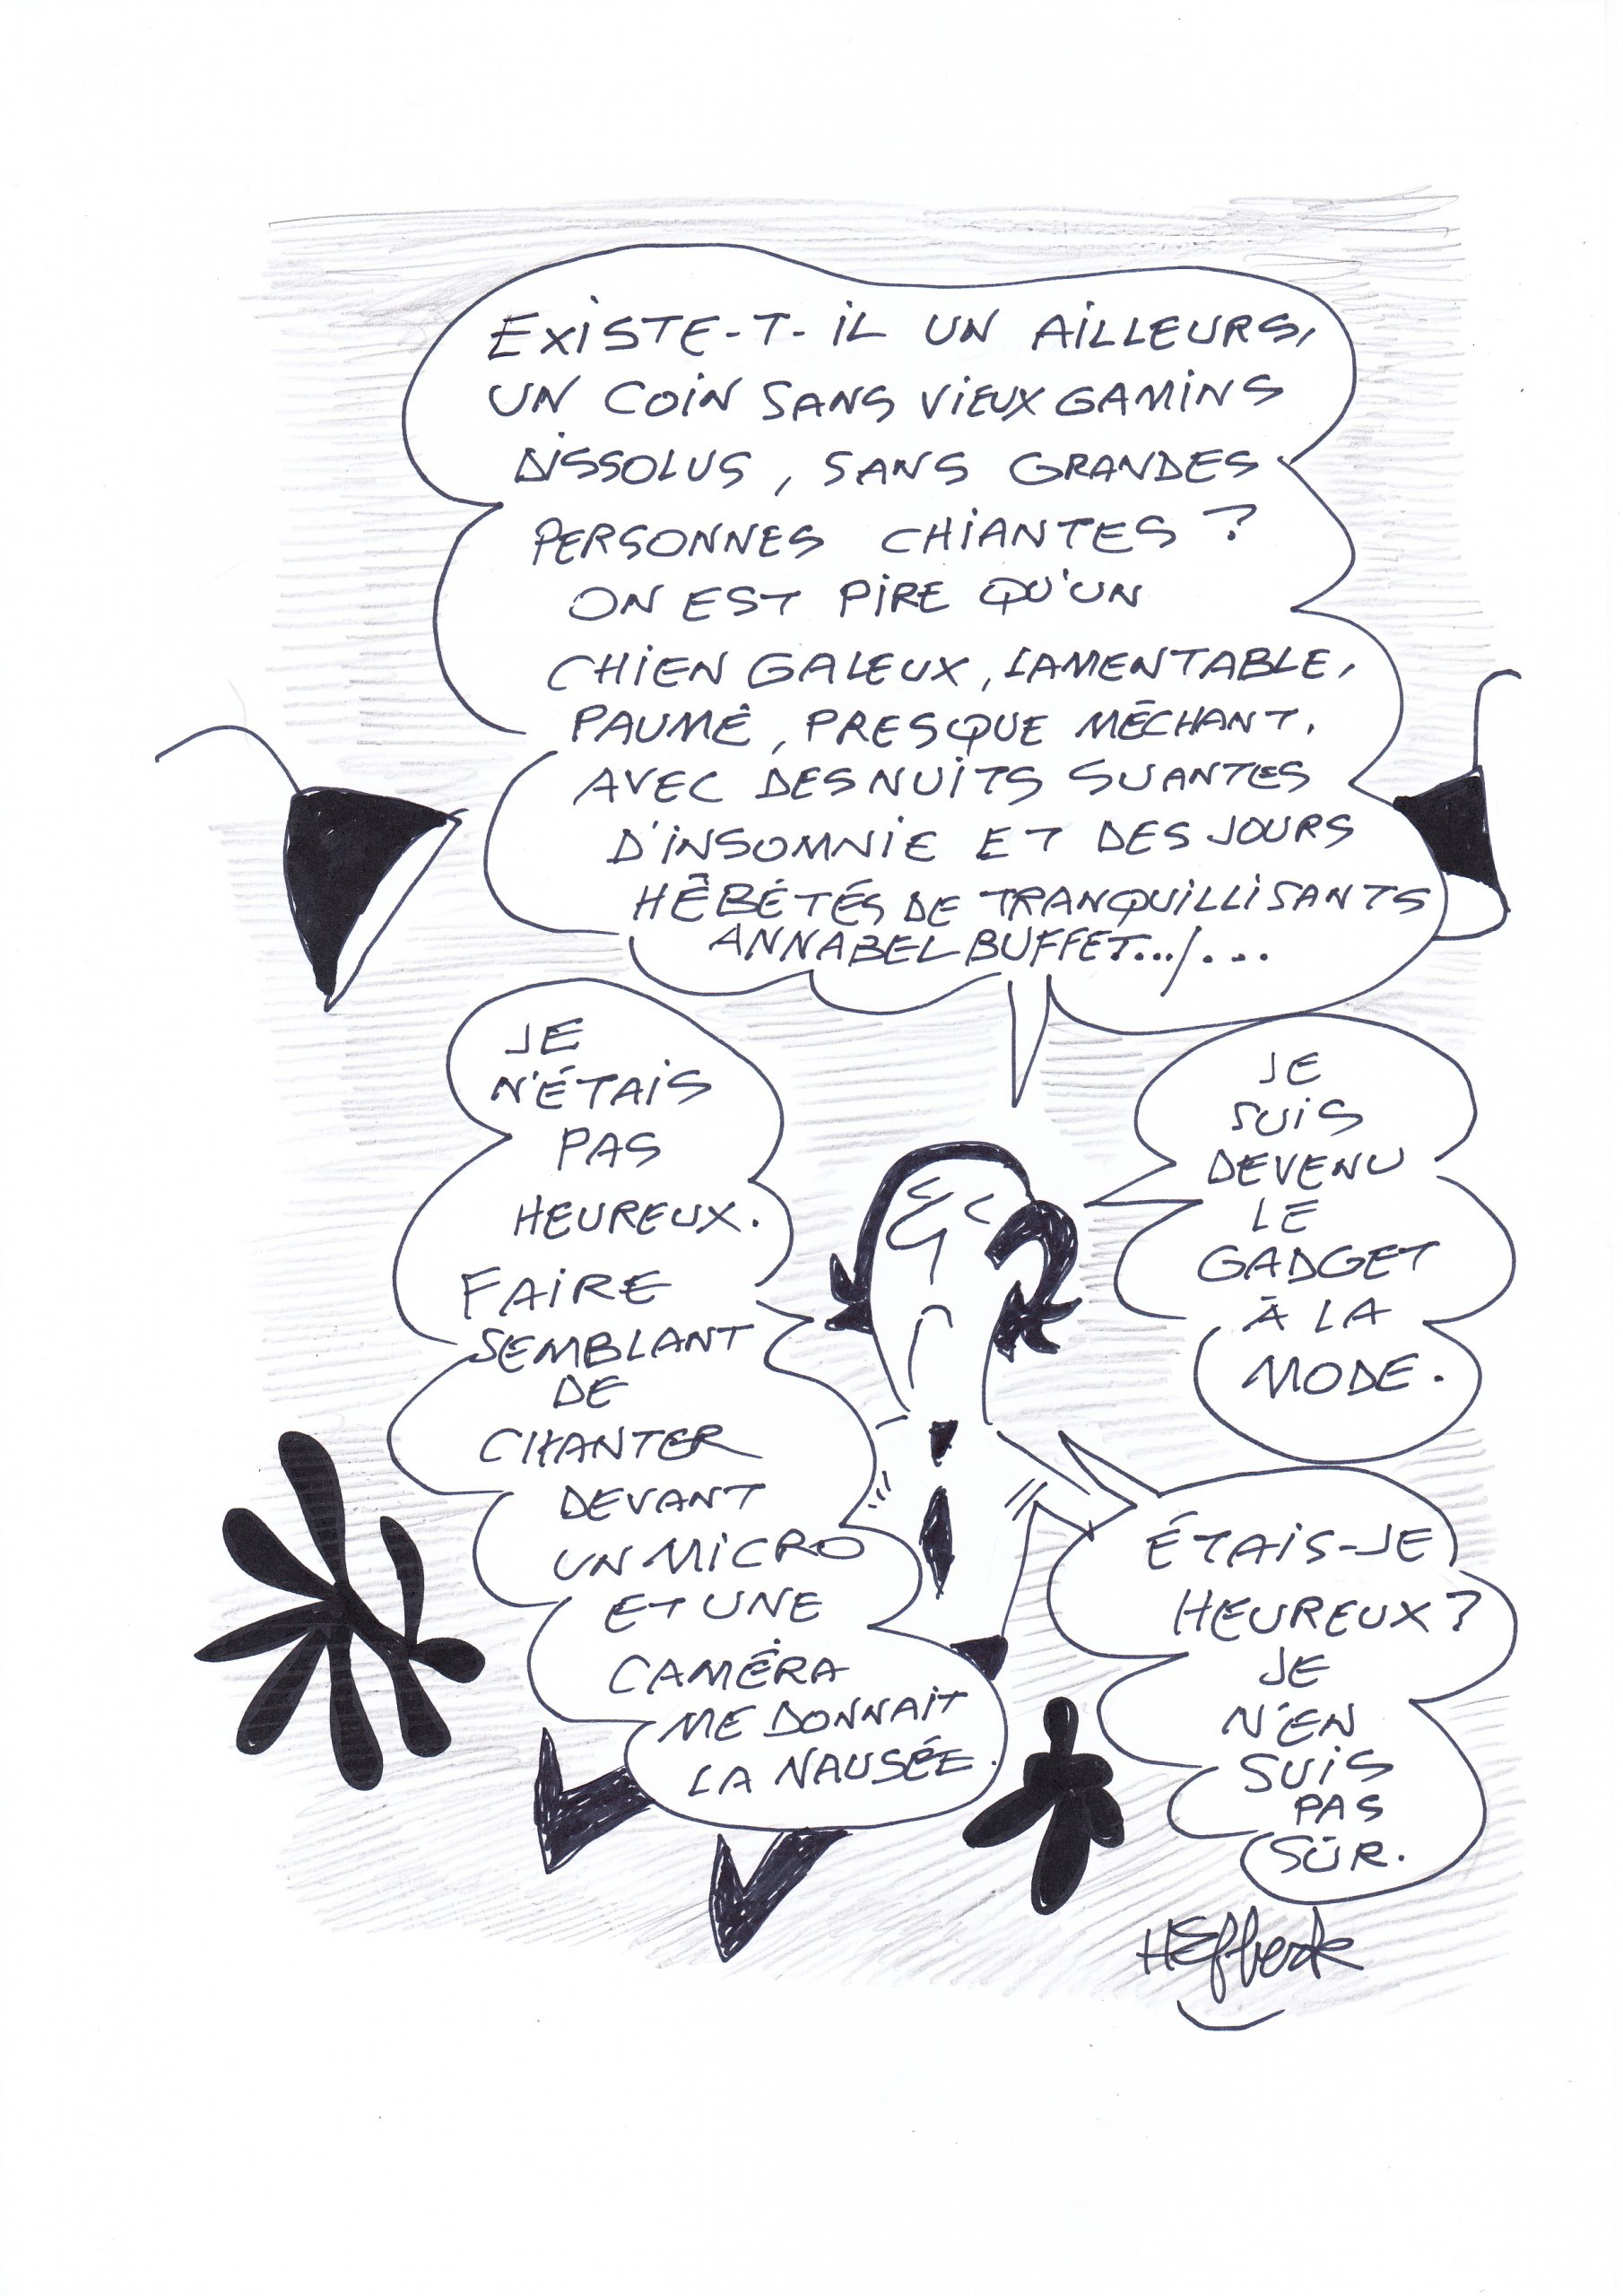 EXISTE-T-IL UN AILLEURS,
UN COIN SANS VIEUX GAMINS
DISSOLUS, SANS GRANDES
PERSONNES CHIANTES ?
ON EST PIRE QU'UN
CHIEN GALEUX, LAMENTABLE,
PAUMÊ, PRESQUE MÉCHANT.
AVEC DES NUITS SUANTES
D'INSOMNIE ET DES JOURS
HÊBÉTÉS DE TRANQUILLISANTS
ANNABEL BUFFET.../...
JE
N'ÉTAIS
PAS
HEUREUX.
FAIRE
SEMBLANT
DE
CHANTER
DEVANT
UN MICRO
ET UNE
CAMÉRA
ME DONNAIT
LA NAUSÉE.
JE
SUIS
DEVENU
LE
GADGET
À LA
MODE.
ÉTAIS-JE
HEUREUX ?
JE
N'EN
SUIS
PAS
SÛR.